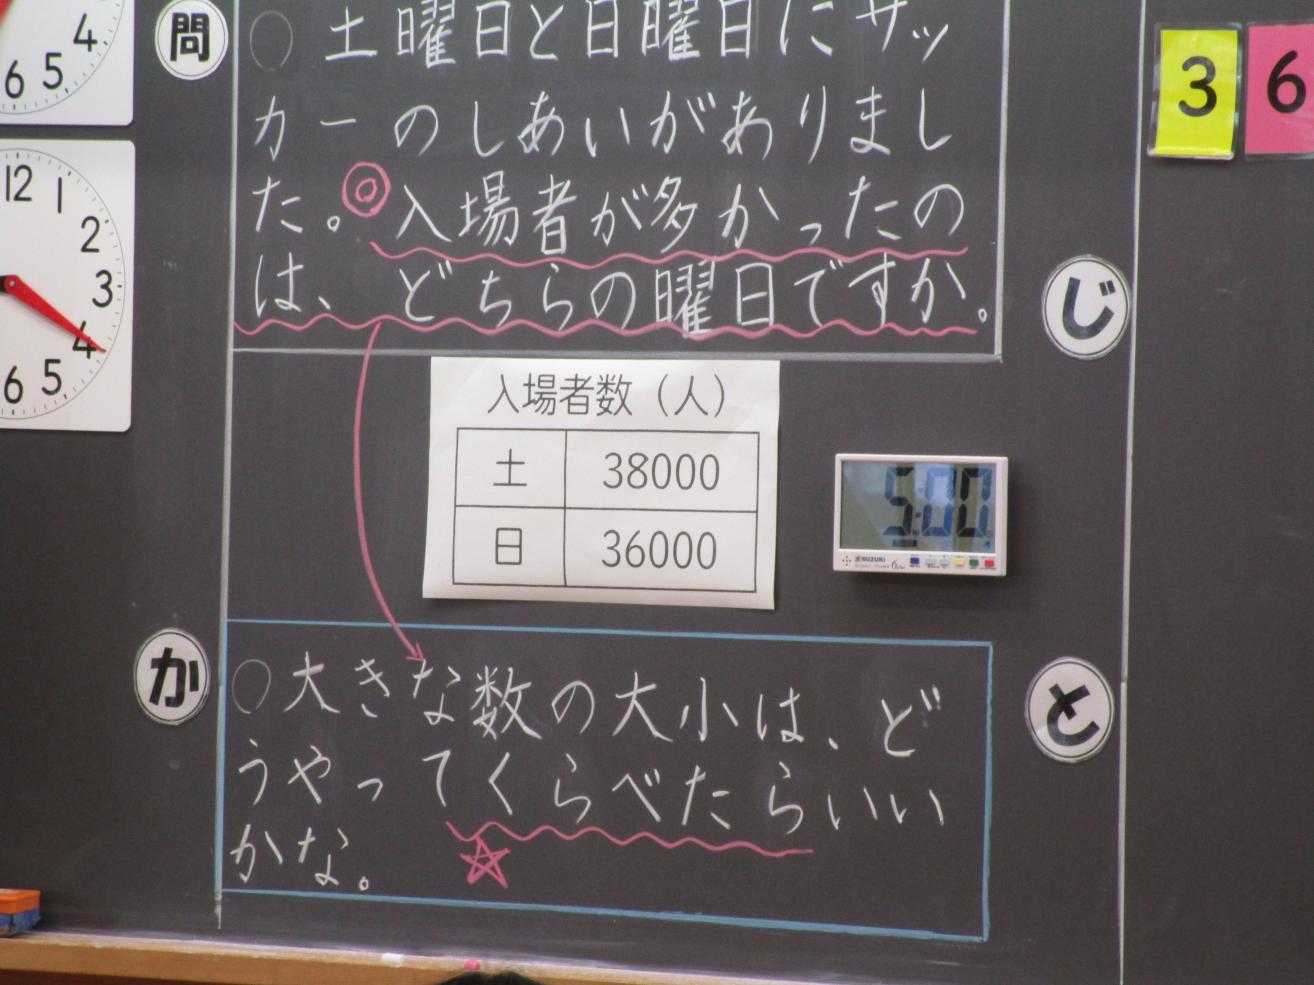 4
5
6
問
土曜日と日曜日にサッ
カーのしあいがありまし
た。◎入場者が多かったの
は、どちらの曜日ですか。
12
1
2
3
4
5
6
じ
3
6
入場者数（人）
土 38000
日 36000
5:00
SUZUKI
か
○大きな数の大小は、ど
うやってくらべたらいい
かな。
と